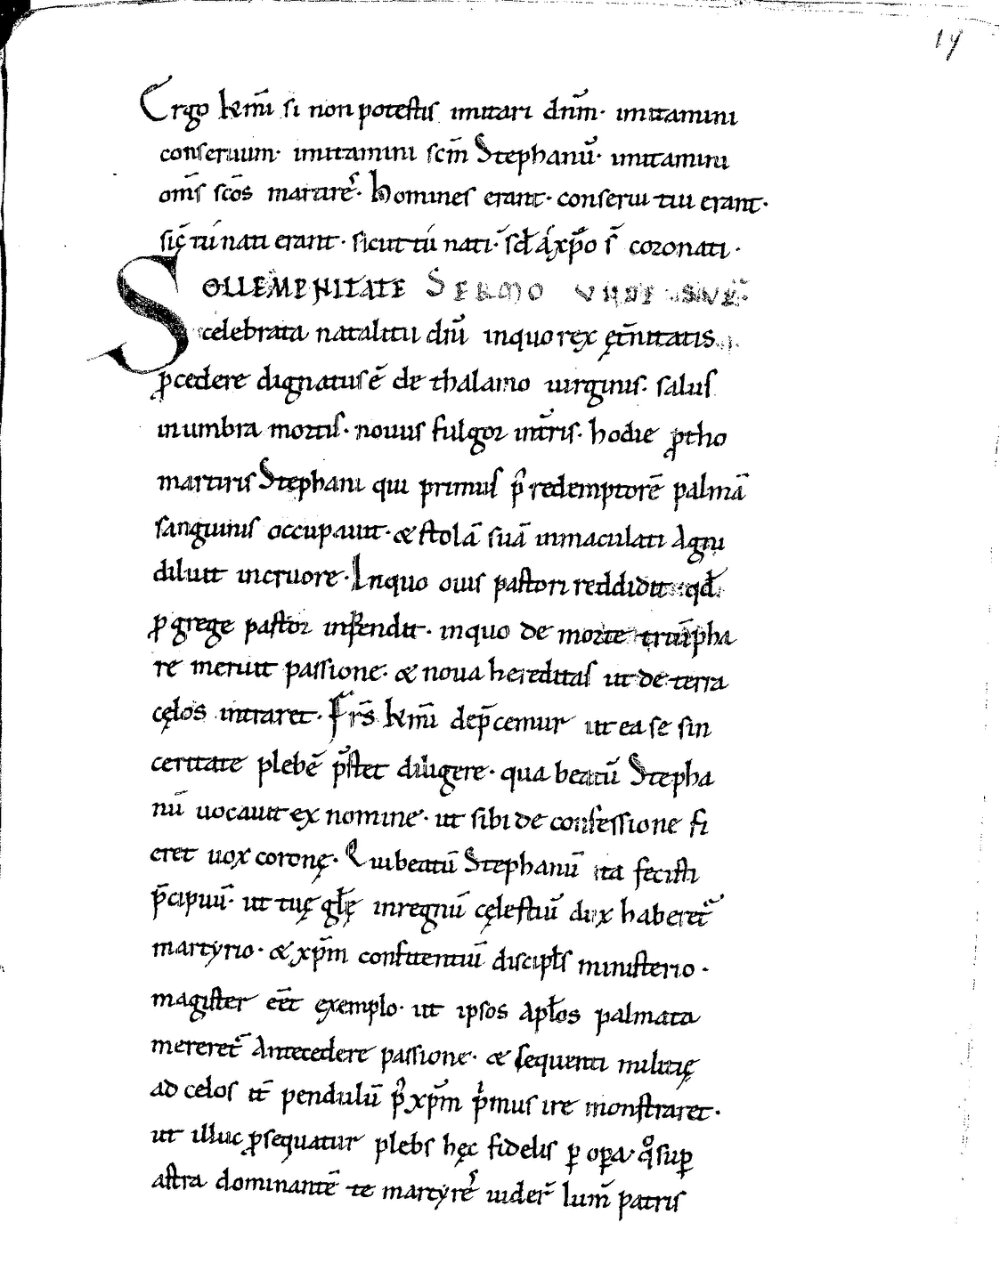 19
Ergo km̄i si non potestis imitari dn̄m · imitamini
conseruum · imitamini scm̄ Stephanū · imitamini
om̄s scōs martires · homines erant · conserui tui erant ·
sic̄ tú nati erant · sicut tú nati · sc̄ł á xp̄o s̄ coronati ·
SOLLEMPNITATE SERMO
celebrata natalitii dn̄i inquo rex ęt̄nitatis
p̱cedere dignatus ē de thalamo uirginis · salus
in umbra mortis · nouus fulgor in t̄ris · hodie p̱tho
martiris Stephani qui primus p̄ redemptorē palmā
sanguinis occupauit · & stolā suā inmaculati Agni
diluit incruore · Inquo ouis pastori reddidit qđ
p̱ grege pastor inp̱endit · inquo de morte triūpha
re meruit passione · & noua hereditas ut de terra
cęlos intraret · Fr̄s km̄i dep̄cemur ut ea se sin
ceritate plebē p̄stet diligere · qua beatū Stepha
nū uocauit ex nomine · ut sibi de confessione fi
eret uox coronę · Qui beatū Stephanū ita fecisti
p̄cipuū · ut tuę głę inregnū cęlestiū dux haberet̄
martyrio · & xp̄m confitentiū discipłs ministerio ·
magister eēt exemplo · ut ipsos apłos palmata
mereret̄ Antecedere passione · & sequenti militię
ad celos it̄ pendulū p̄ xp̄m p̄mus ire monstraret ·
ut illuc p̱sequatur plebs hęc fidelis p̱ op̱a · q̊ sup̱
astra dominantē te martyres uider̄ lum̄ patris